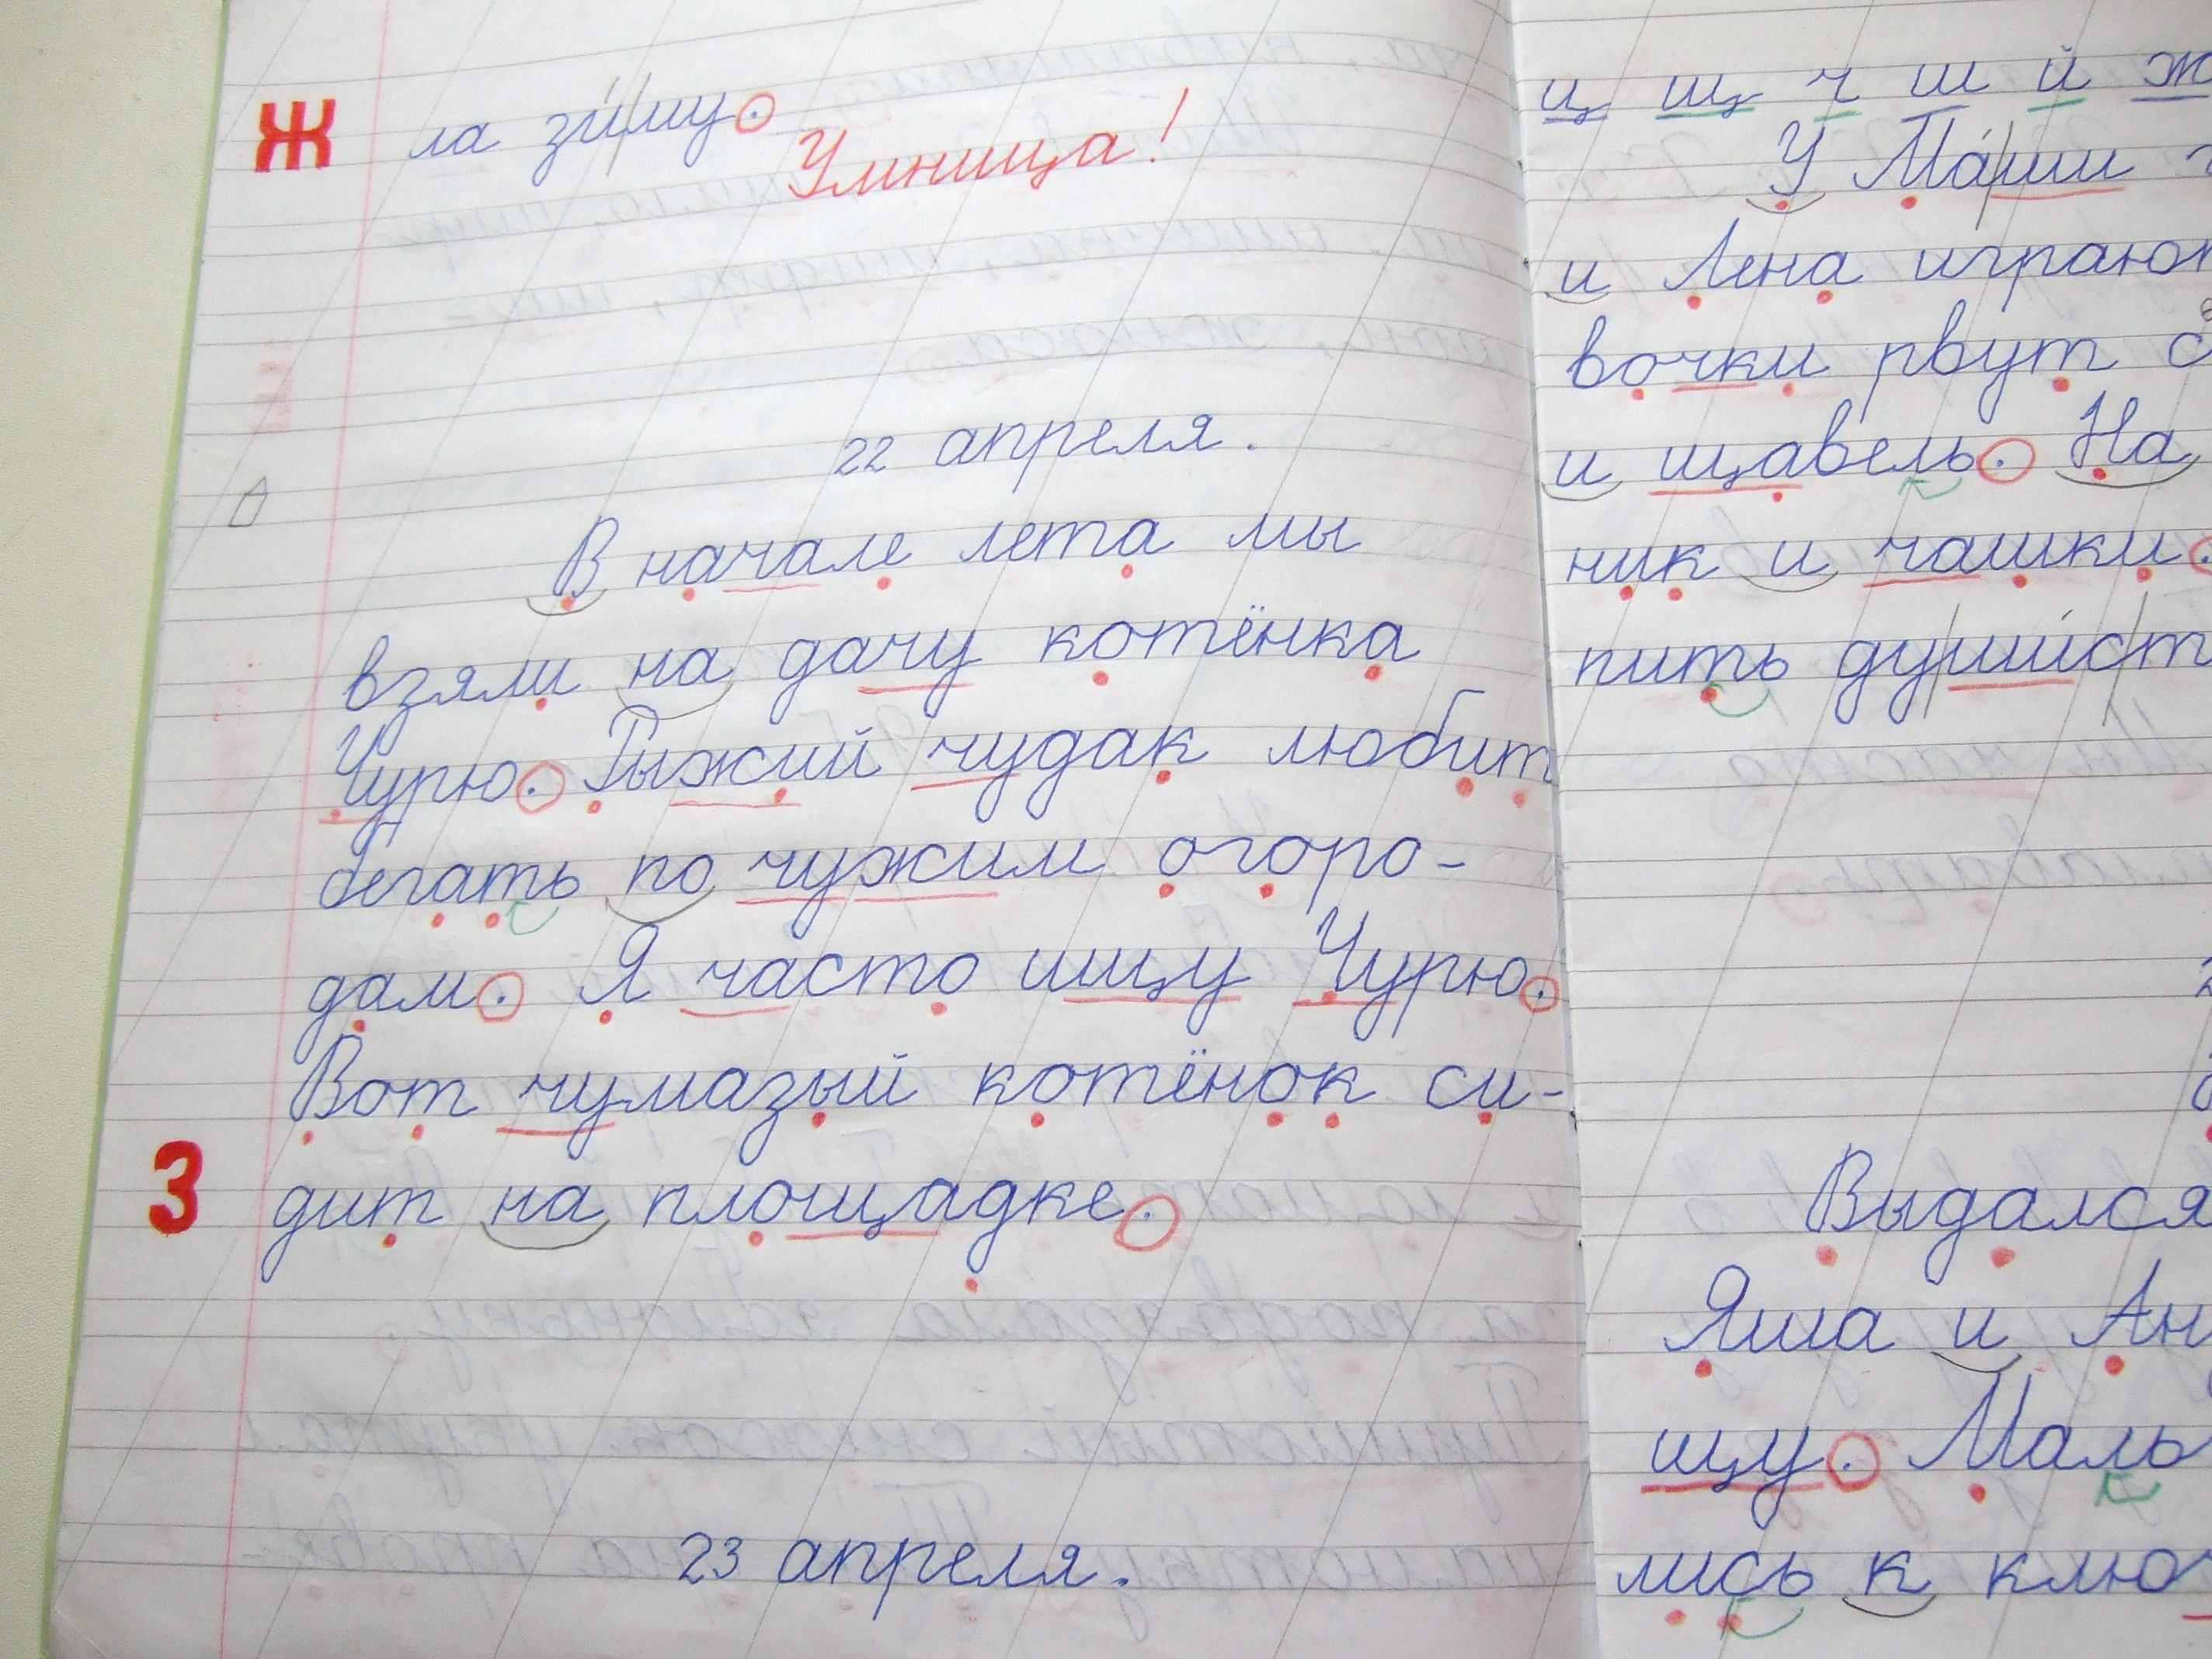 Ж
ла зиму.
Умница!
22 апреля.
В начале лета мы
взяли на дачу котёнка
Чурю. Рыжий чудак любит
бегать по чужим огоро-
дам. Я часто ищу Чурю.
Вот чумазый котёнок си-
З
дит на площадке.
23 апреля.
ц щ ч ш й ж
У Маши
и Лена играют
вочки рвут с
и щавель. На
ник и чашки.
пить душист
Выдался
Яша и Ан
щу. Маль
лись к ключ